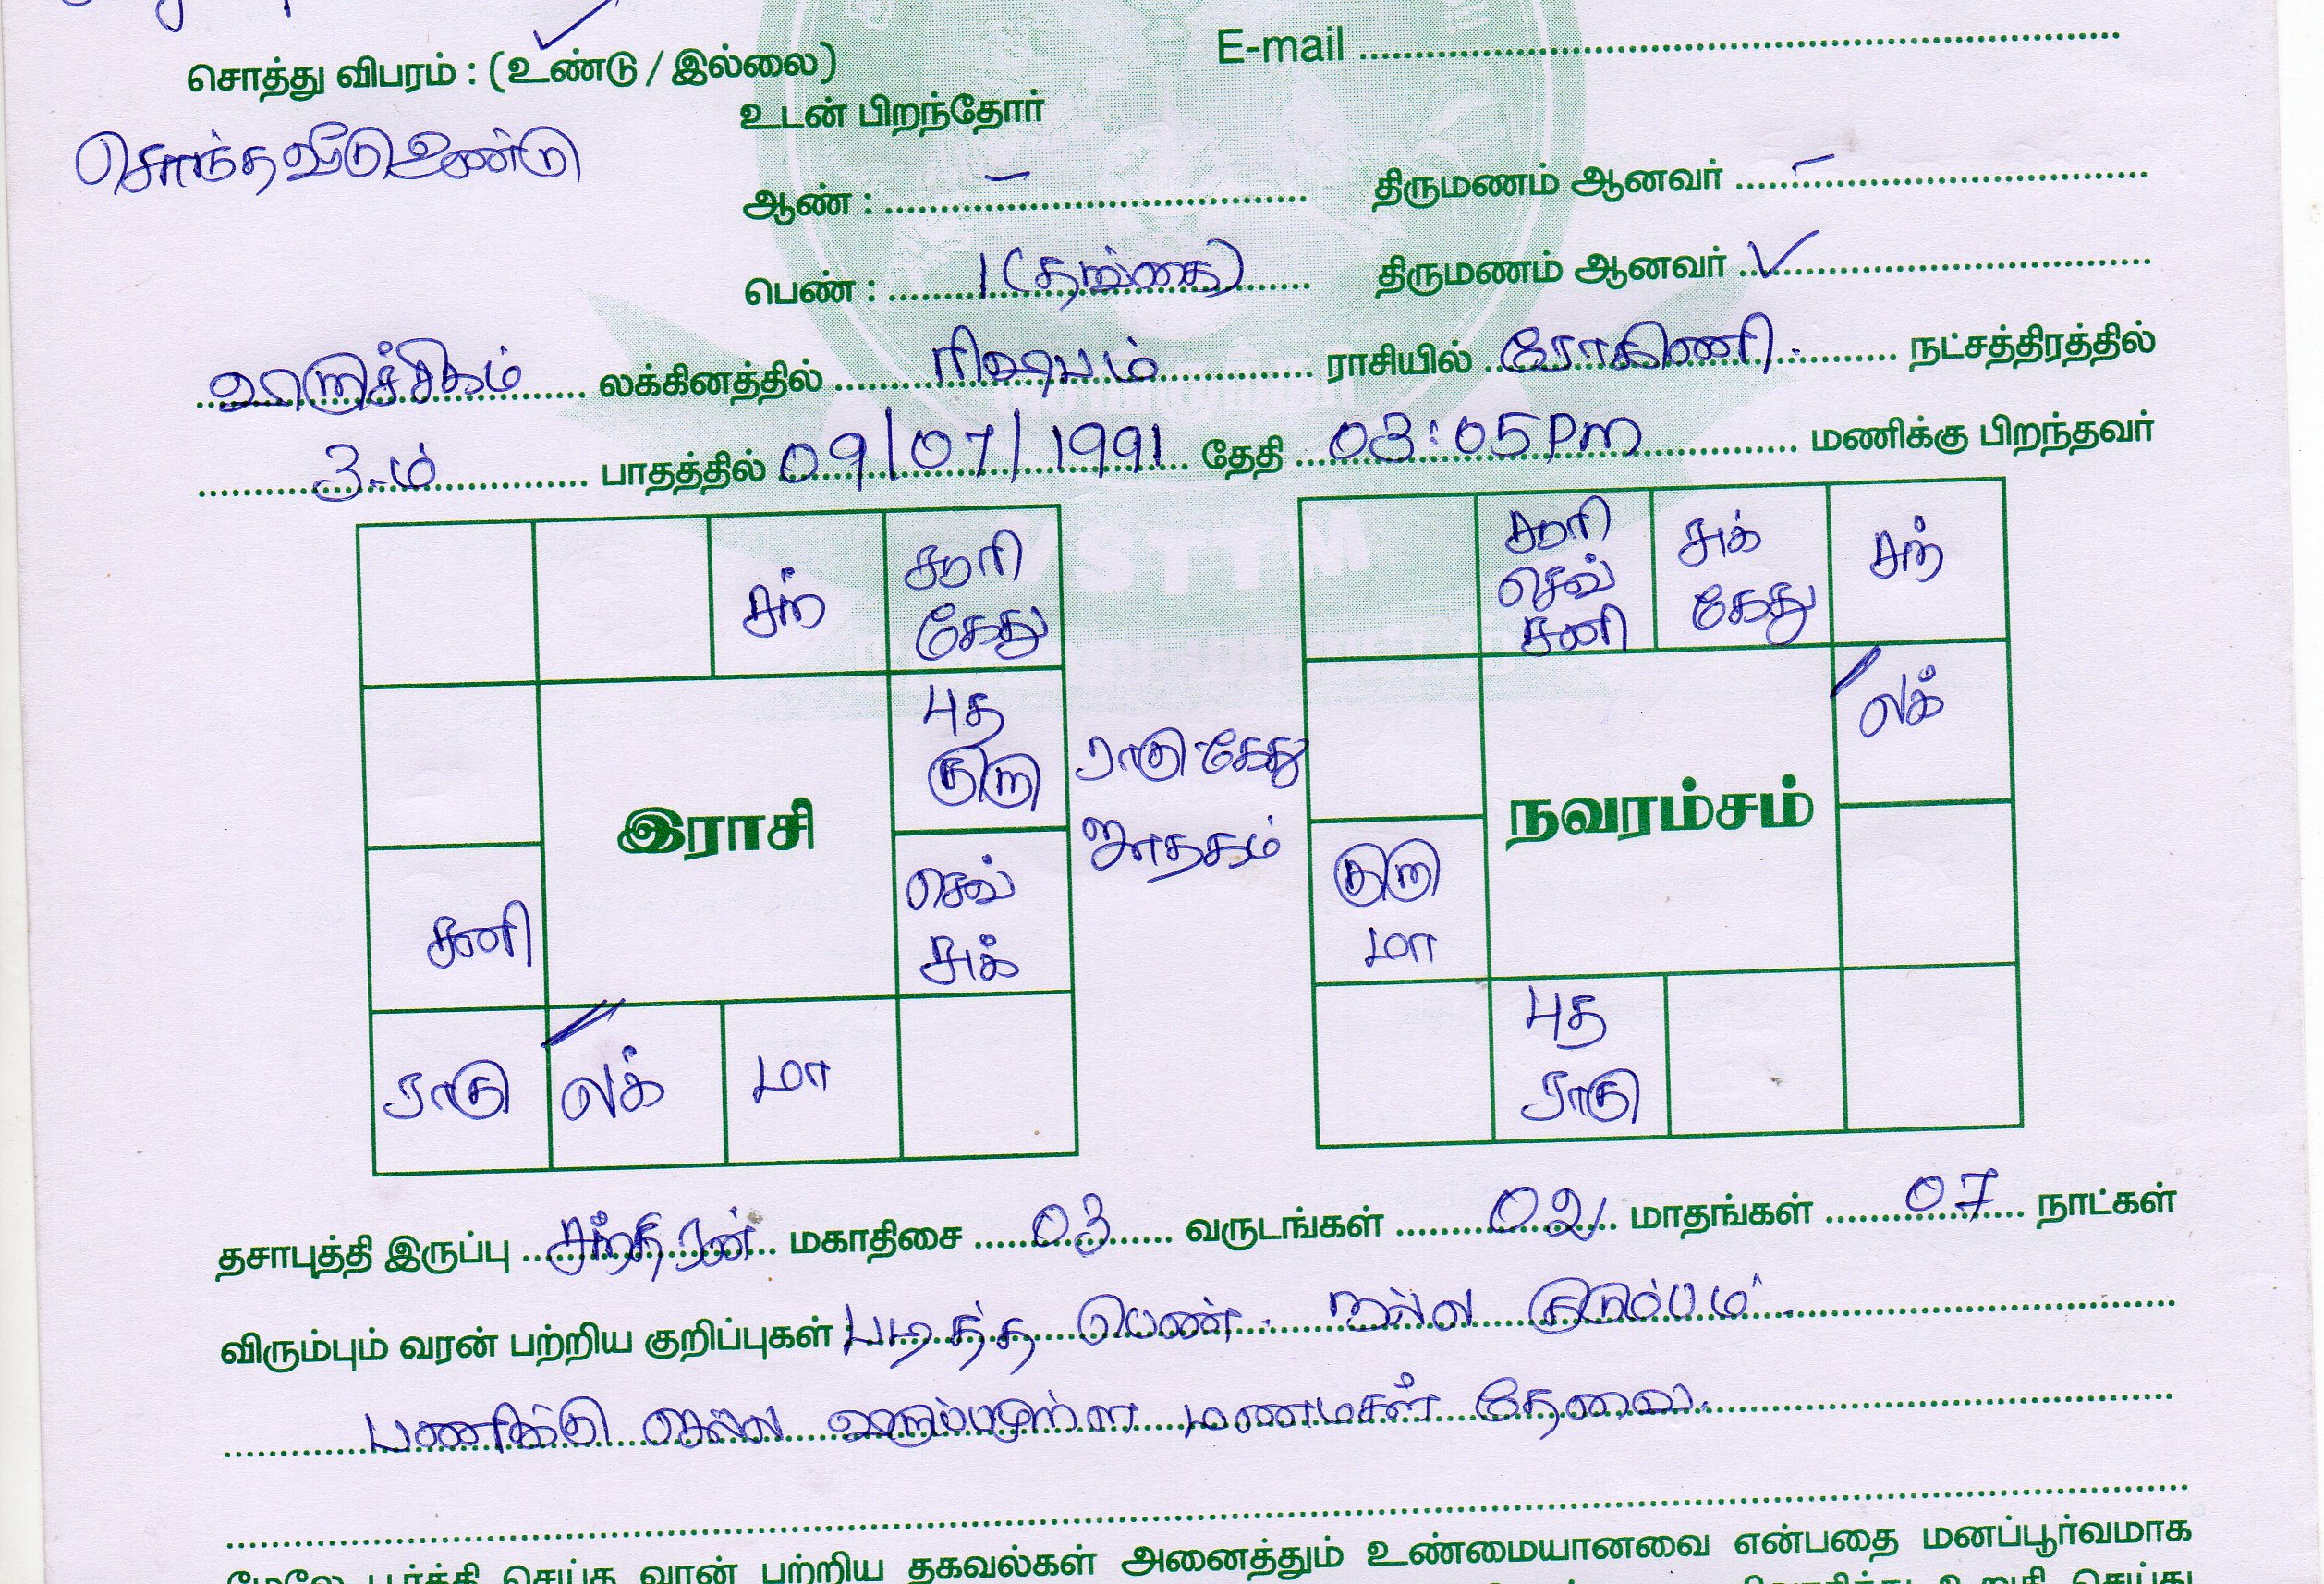 சொத்து விபரம் : (உண்டு / இல்லை)
E-mail
சொந்த வீடு உண்டு
உடன் பிறந்தோர்
ஆண் : – திருமணம் ஆனவர் –
பெண் : 1 (தங்கை) திருமணம் ஆனவர் ✓
விருச்சிகம் லக்கினத்தில் ரிஷபம் ராசியில் ரோகிணி. நட்சத்திரத்தில்
3-ம் பாதத்தில் 09/07/1991 தேதி 03:05 Pm மணிக்கு பிறந்தவர்
VSTTM
சந்
சூரி
கேது
புத
குரு
இராசி
சனி
செவ்
சுக்
ராகு
லக்
மா
ராகு கேது
ஜாதகம்
சூரி
செவ்
சனி
சுக்
கேது
சந்
லக்
நவரம்சம்
குரு
மா
புத
ராகு
தசாபுத்தி இருப்பு சந்திரன் மகாதிசை 03 வருடங்கள் 02 மாதங்கள் 07 நாட்கள்
விரும்பும் வரன் பற்றிய குறிப்புகள் : படித்த பெண். நல்ல குடும்பம்.
பணிக்கு செல்ல விருப்பமுள்ள மணமகள் தேவை.
மேலே பூர்த்தி செய்த வரன் பற்றிய தகவல்கள் அனைத்தும் உண்மையானவை என்பதை மனப்பூர்வமாக